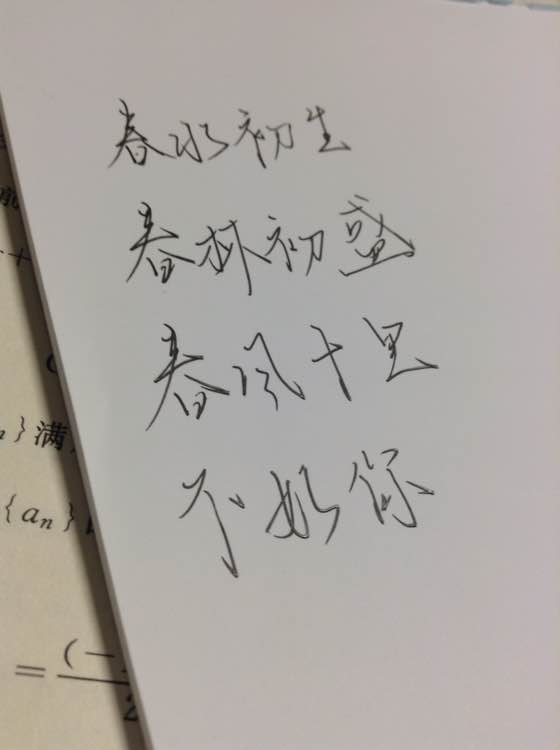 春水初生
春林初盛
春风十里
不如你
满
{a_n}
=